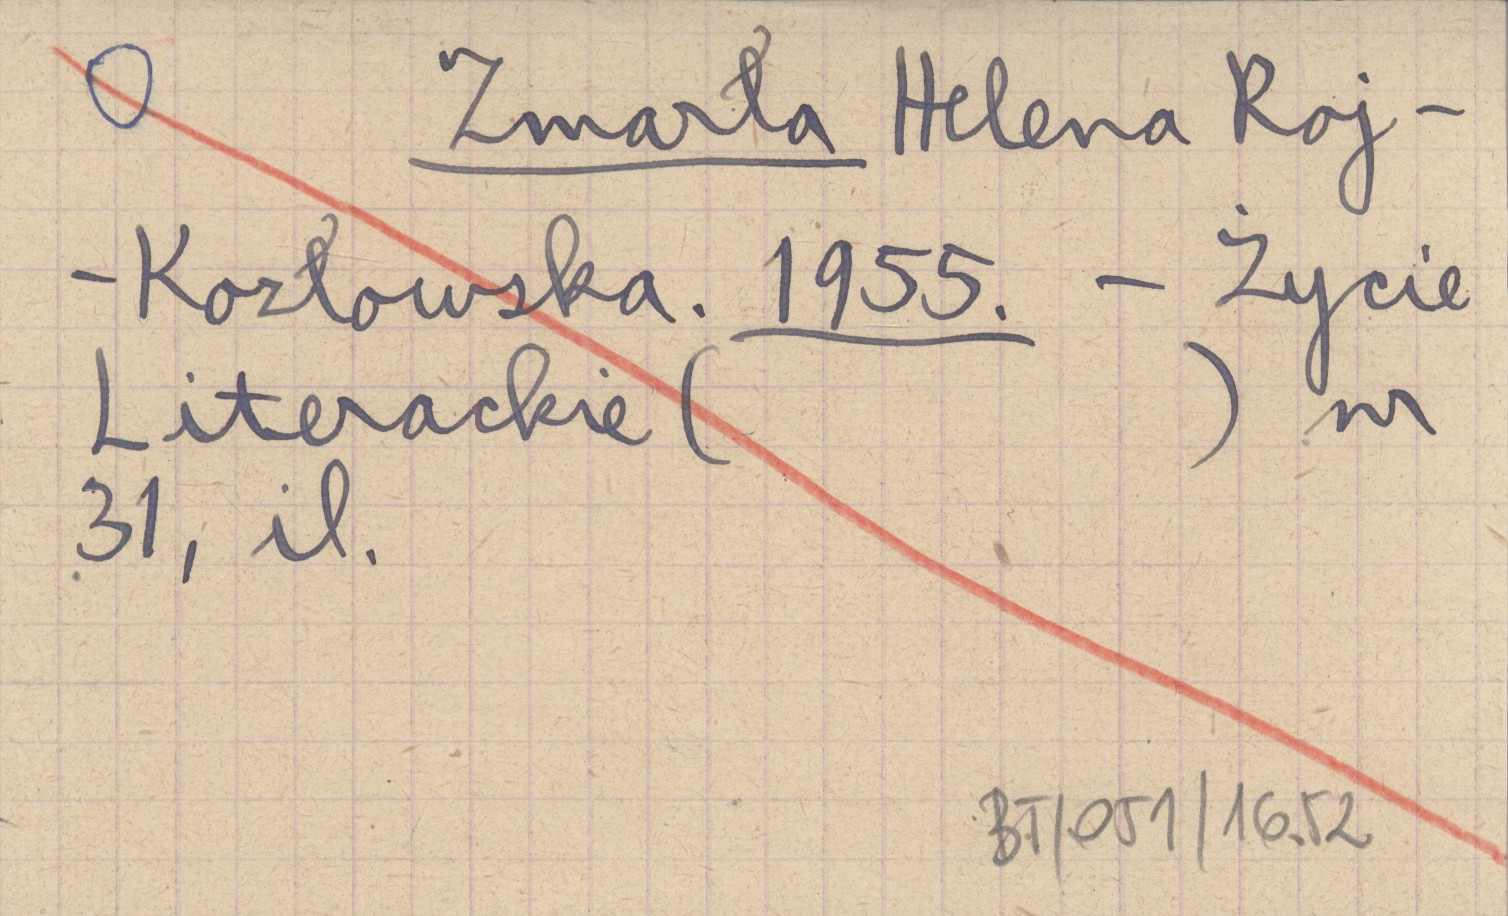 Zmarła Helena Roj-
-Kozłowska. 1955. - Życie
Literackie ( ) nr
31, il.
BT/051/1652